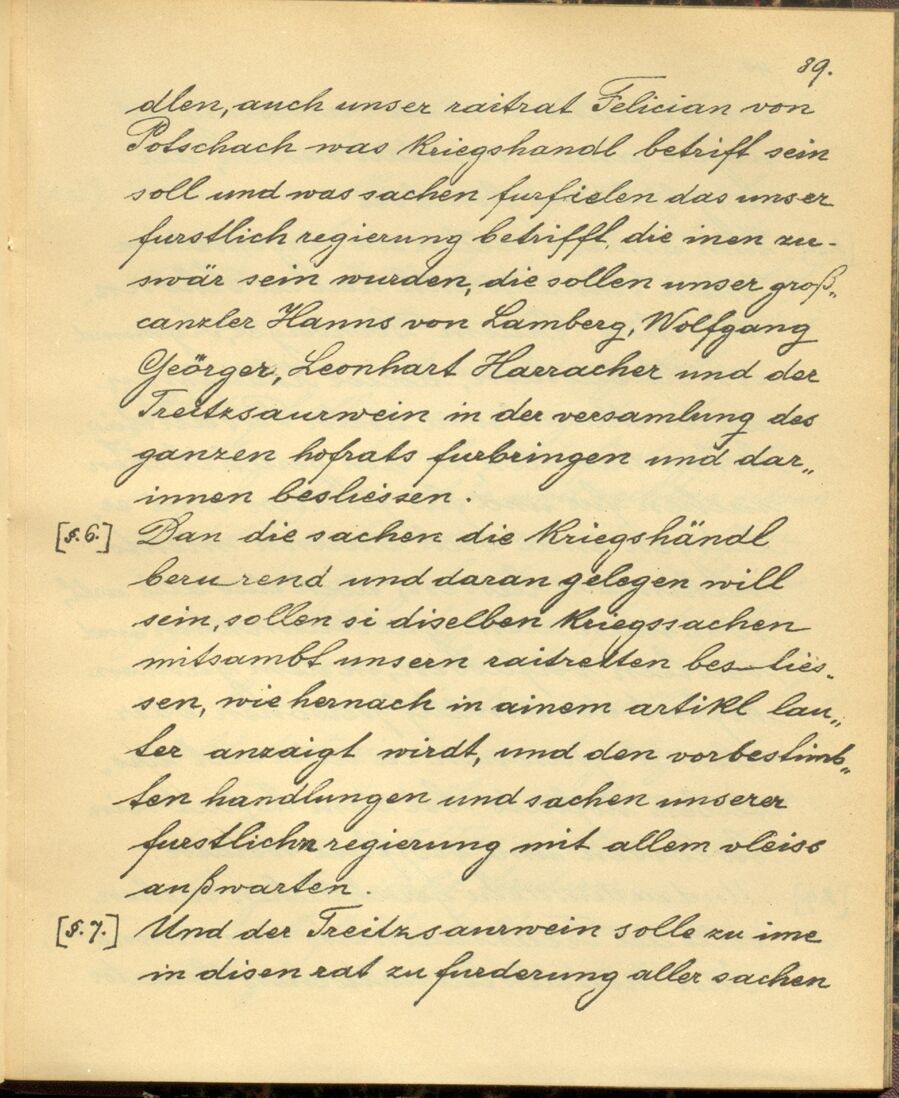 39.
dlen, auch unser raitrat Felician von
Potschach was kriegshandl betrift sein
soll und was sachen furfielen das unser
furstlich regierung betrifft, die inen zu-
swär sein wurden, die sollen unser groß„
canzler Hanns von Lamberg, Wolfgang
Geörger, Leonhart Harracher und der
Treitzsaurwein in der versamlung des
ganzen hofrats furbringen und dar„
innen besliessen.
[§. 6.] Dan die sachen die kriegshändl
berurend und daran gelegen will
sein, sollen si diselben kriegssachen
mitsambt unsern raitretten beslies„
sen, wie hernach in ainem artikl lau„
ter anzaigt wirdt, und den vorbestimb„
ten handlungen und sachen unserer
furstlichn regierung mit allem vleiss
außwarten.
[§. 7.] Und der Treitzsaurwein solle zu ime
in disen rat zu furderung aller sachen